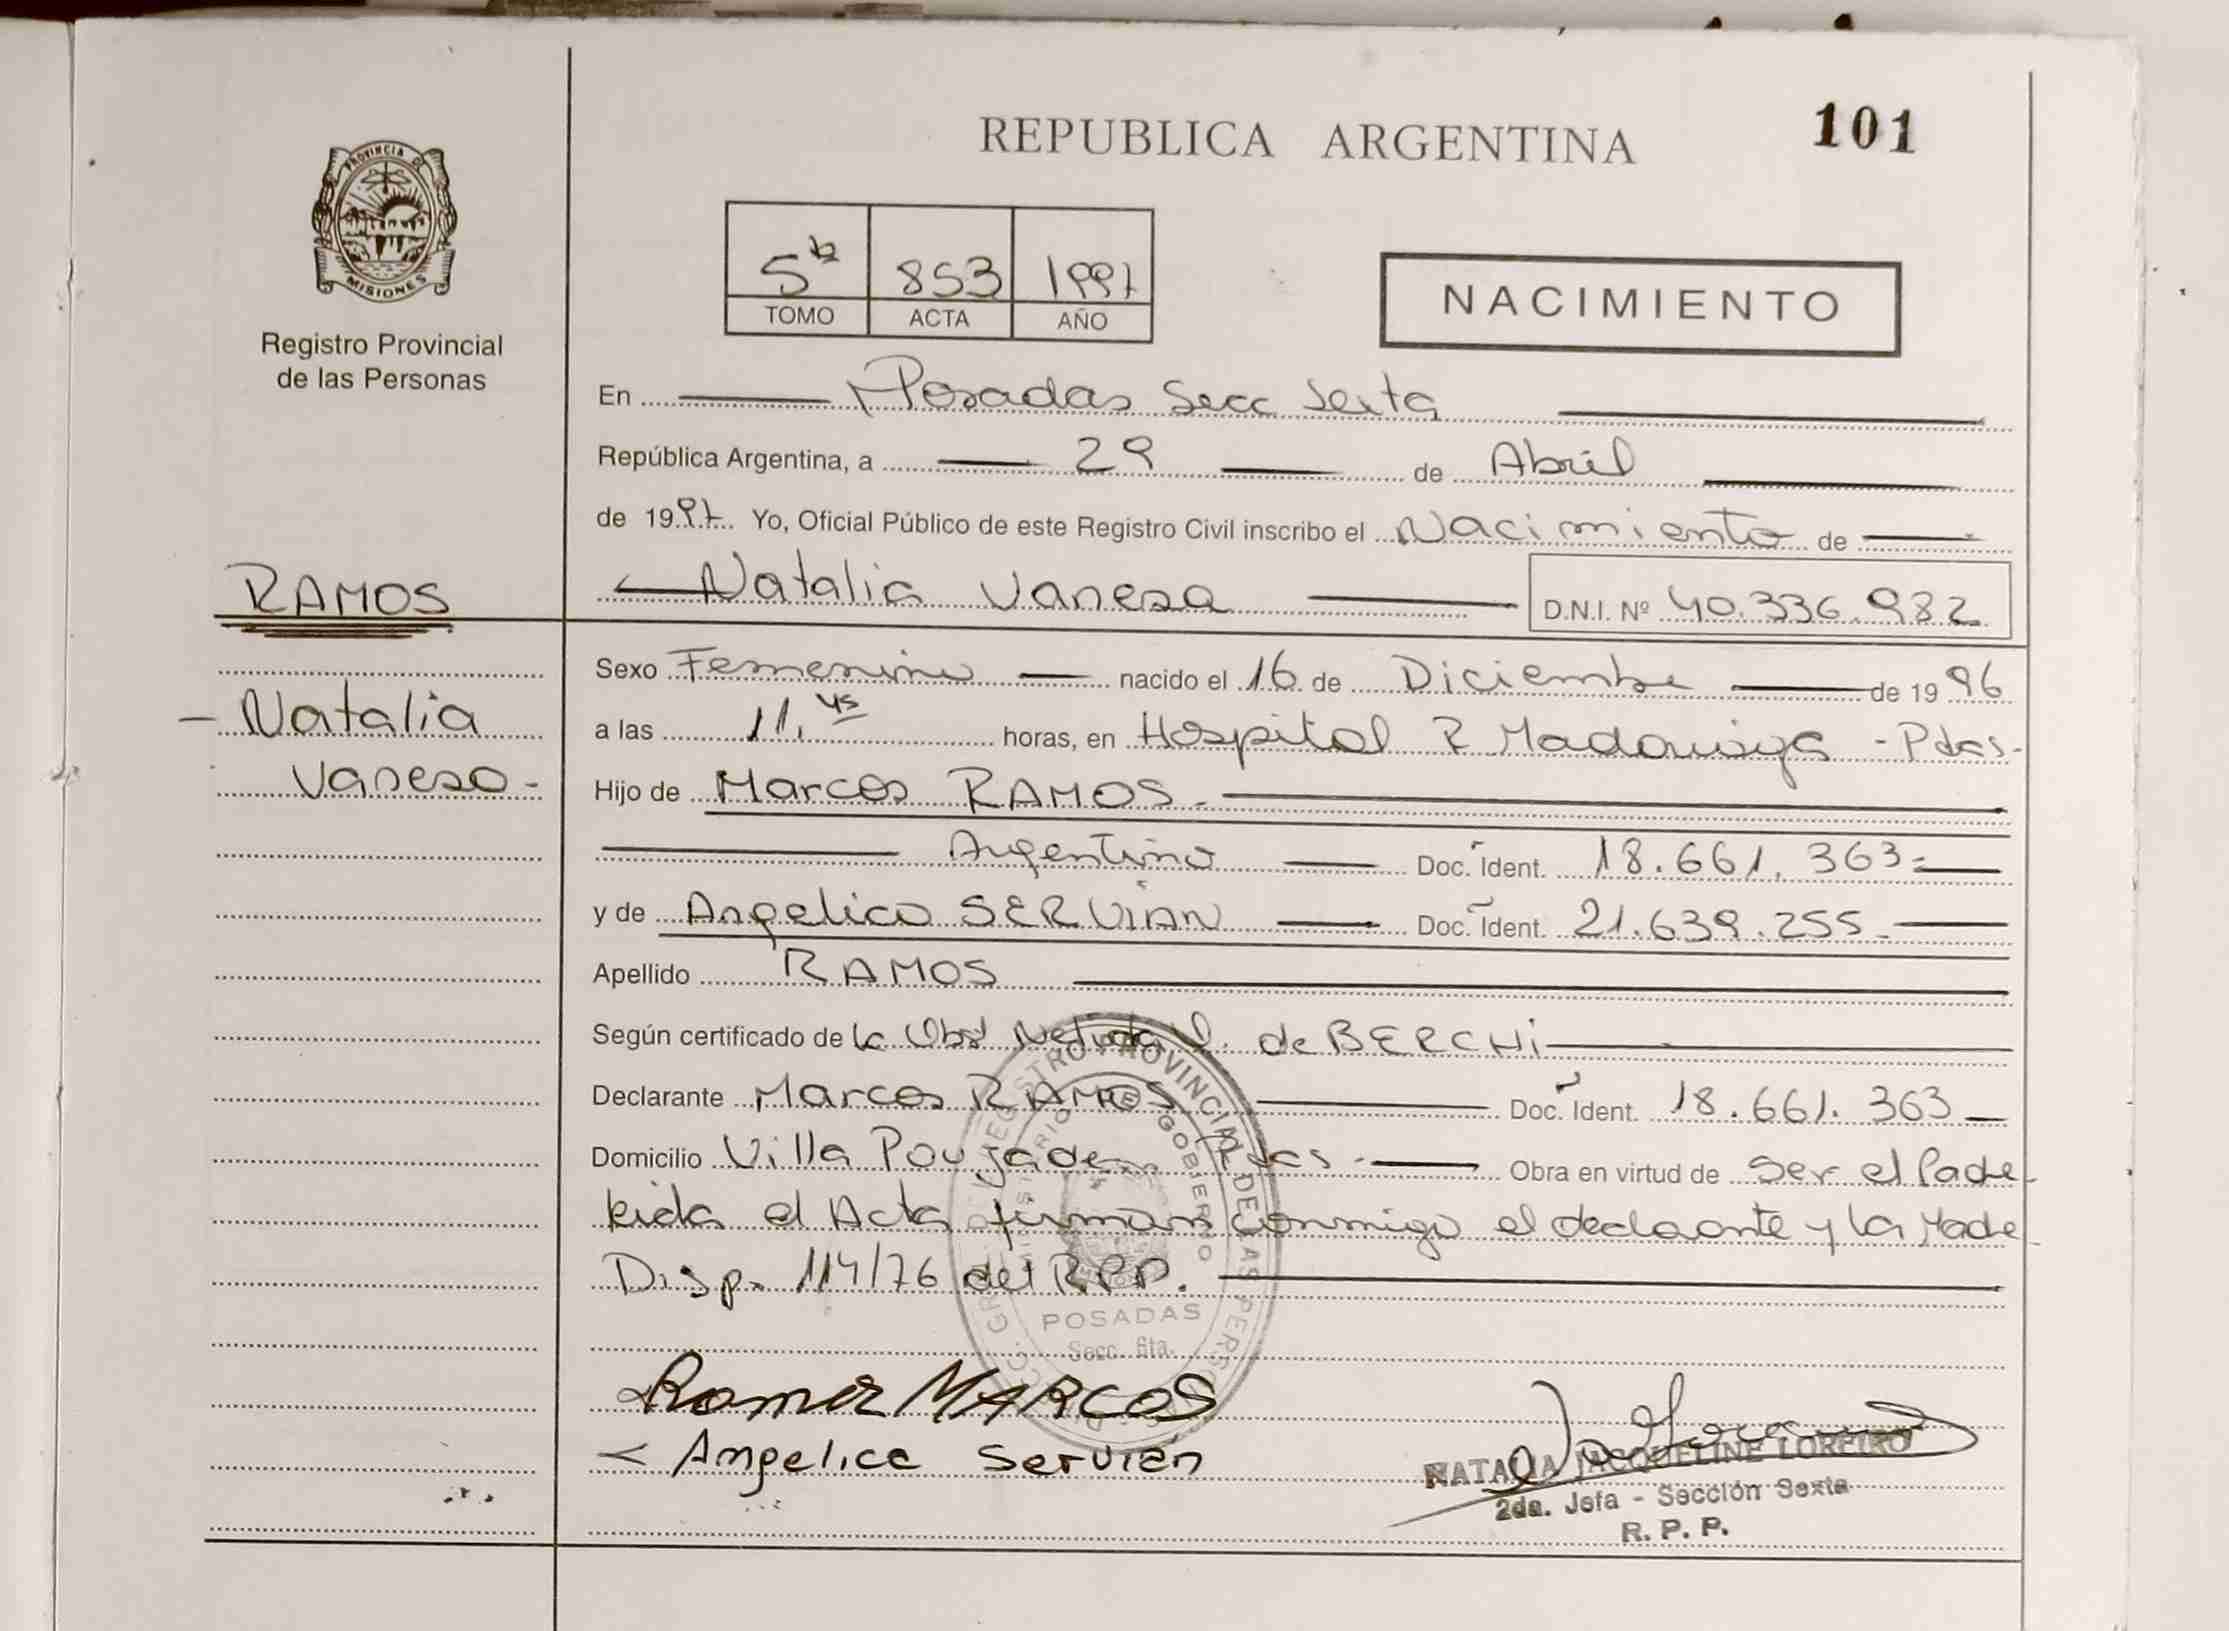 REPUBLICA ARGENTINA
101
PROVINCIA DE
MISIONES
Registro Provincial
de las Personas
5ta 853 1997
TOMO ACTA AÑO
NACIMIENTO
En Posadas Secc Sexta
República Argentina, a 29 de Abril
de 1997 Yo, Oficial Público de este Registro Civil inscribo el Nacimiento de
RAMOS
Natalia Vanesa D.N.I. Nº 40.336.982
Natalia
Vanesa-
Sexo Femenino nacido el 16 de Diciembre de 1996
a las 11,45 horas, en Hospital R Madariaga - Pdas-
Hijo de Marcos RAMOS-
Argentino Doc. Ident. 18.661.363-
y de Angelica SERVIAN Doc. Ident. 21.639.255-
Apellido RAMOS
Según certificado de la Obst Nelida de BERCHI
Declarante Marcos RAMOS Doc. Ident. 18.661.363
Domicilio Villa Poujade Pdas- Obra en virtud de ser el Padre-
leida el Acta firman conmigo el declarante y la Madre
Disp. 114/76 del R.P.P.
REGISTRO PROVINCIAL DE LAS PERSONAS
GOBIERNO
POSADAS
Secc. 6ta.
Ramos MARCOS
Angelica Servián
NATALIA JACQUELINE LOREIRO
2da. Jefa - Sección Sexta
R. P. P.